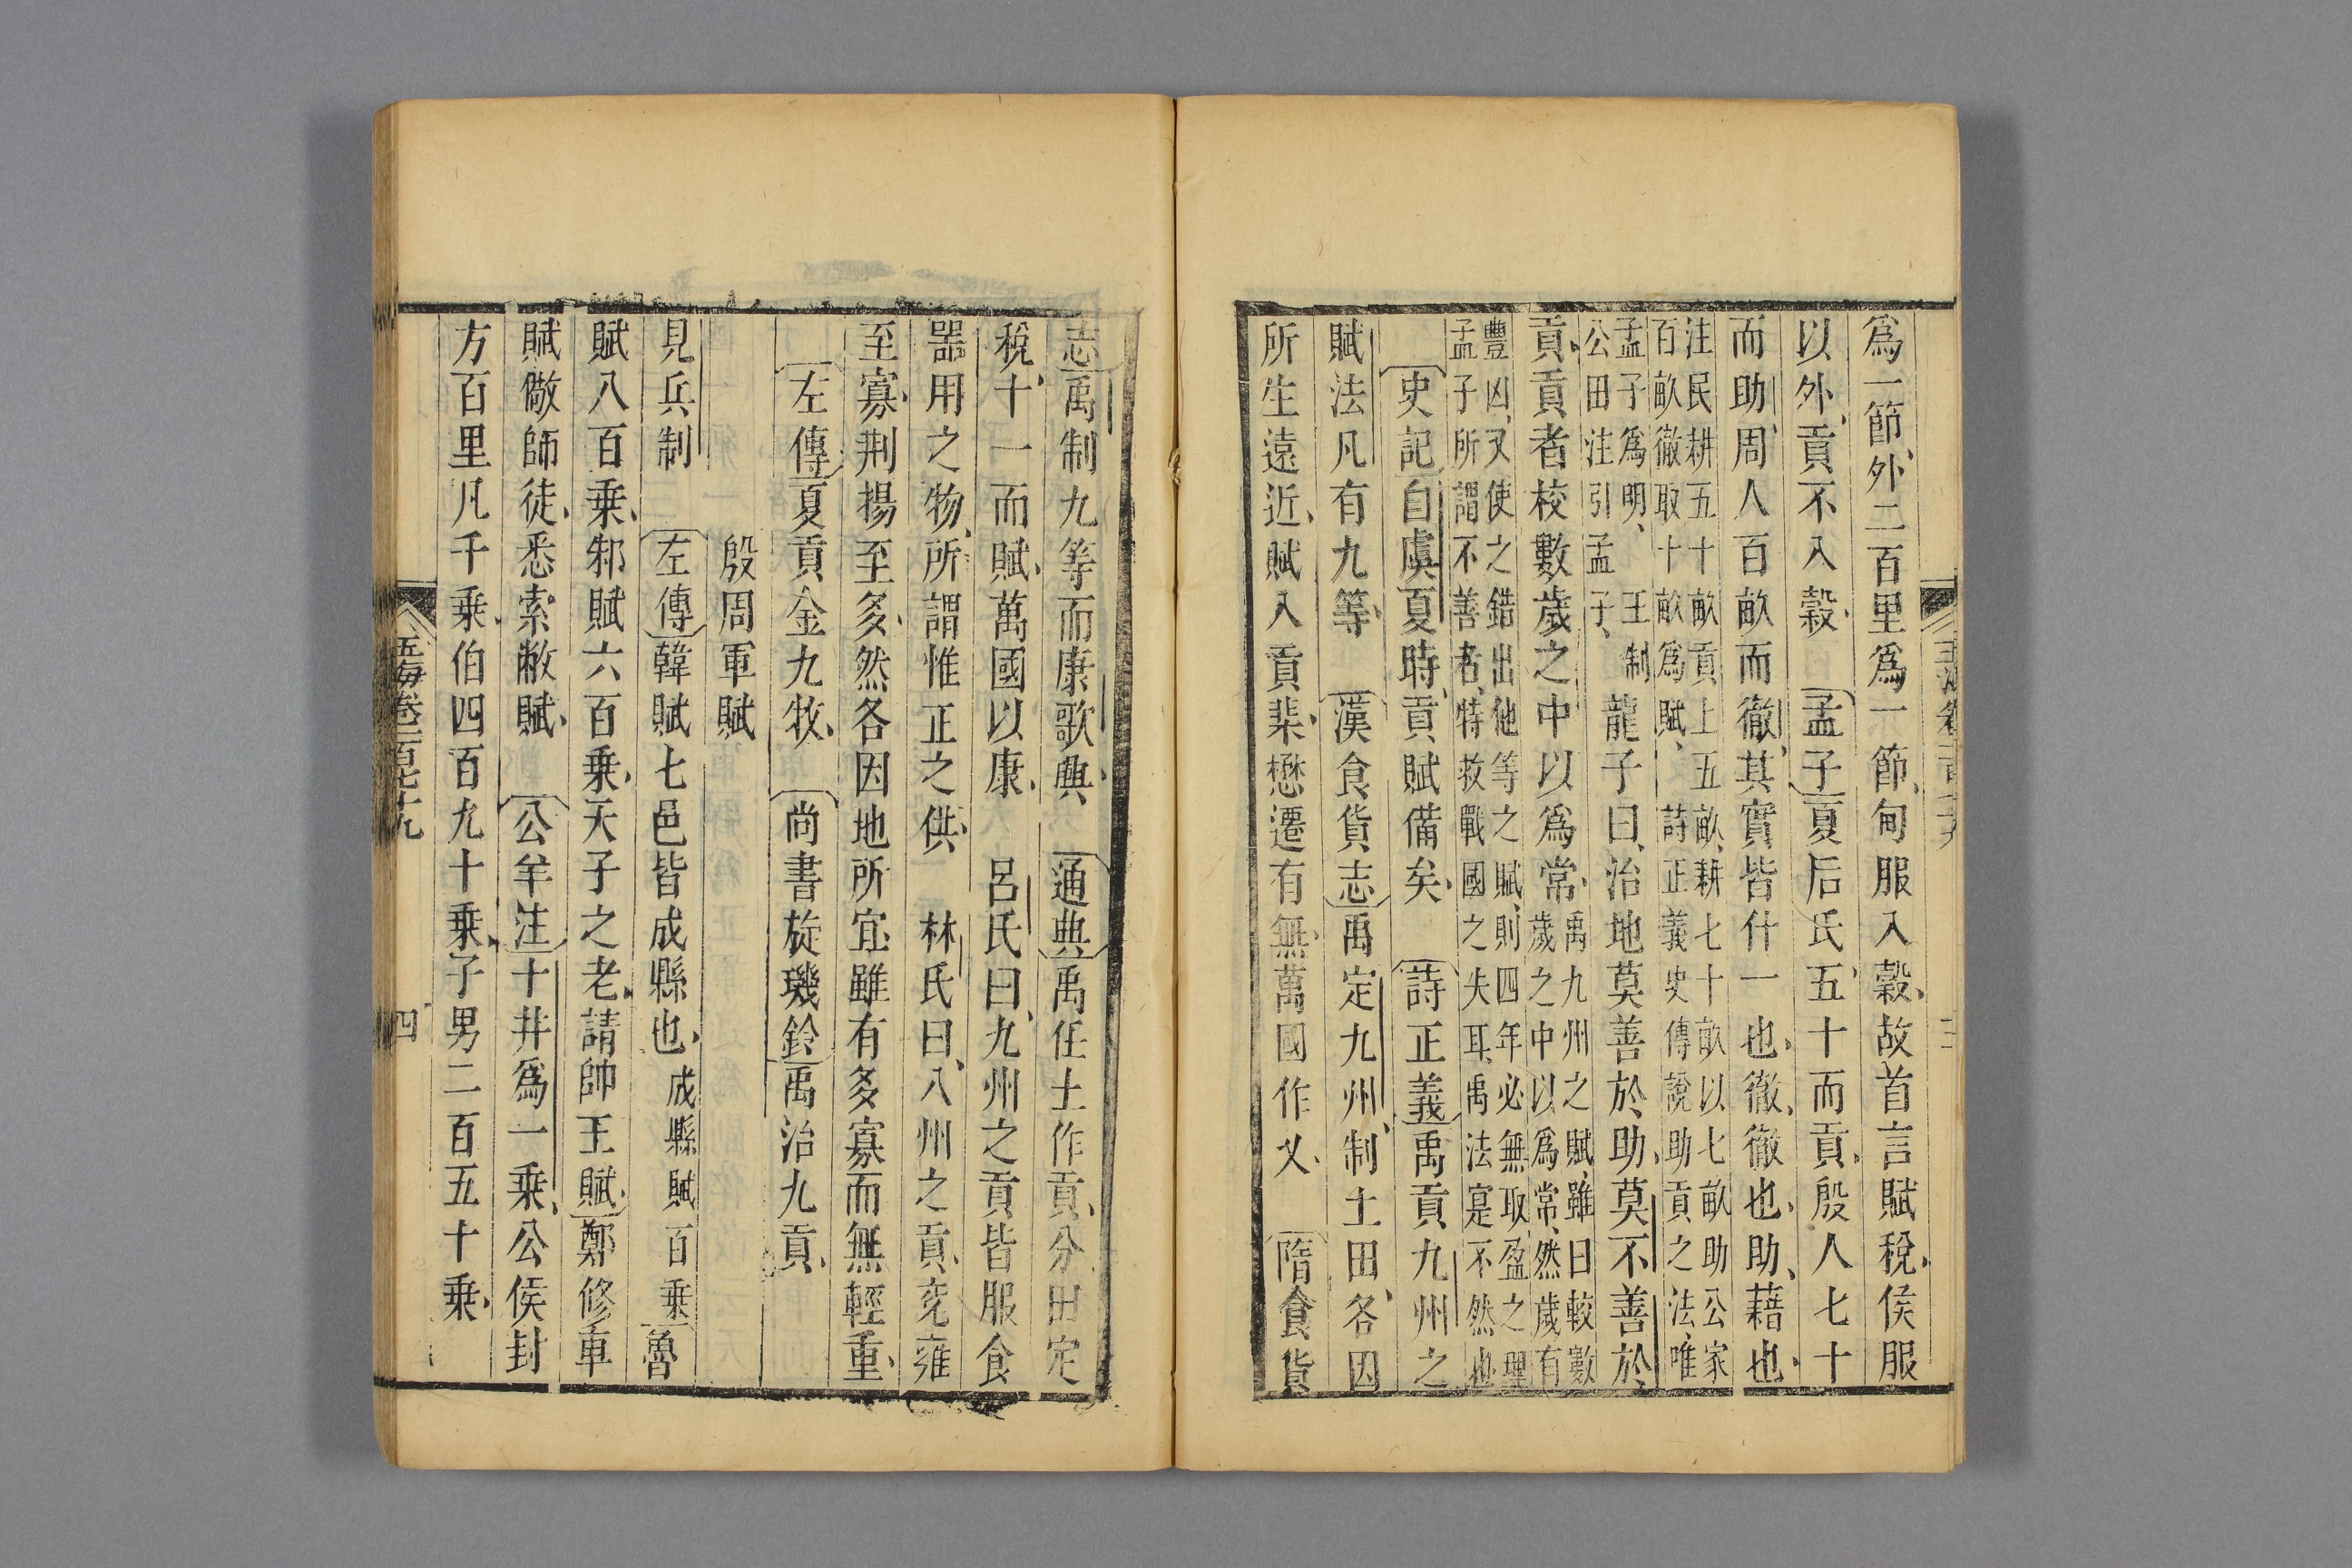 爲一節、外二百里爲一節、甸服入穀、故首言賦稅、侯服
以外、貢不入穀、孟子夏后氏五十而貢、殷人七十
而助、周人百畝而徹、其實皆什一也、徹、徹也、助、藉也、
注民耕五十畝貢上五畝、耕七十畝以七畝助公家
百畝徹取十畝爲賦、詩正義史傳說助貢之法、唯
孟子爲明、王制
公田注引孟子、
龍子曰、治地莫善於助、莫不善於
貢、貢者校數歲之中以爲常、
禹九州之賦、雖曰較數
歲之中以爲常、然歲有
豐凶、又使之錯出他等之賦、則四年必無取盈之理
孟子所謂不善者、特救戰國之失耳、禹法寔不然也
史記自虞夏時、貢賦備矣、詩正義禹貢九州之
賦法凡有九等、漢食貨志禹定九州、制土田、各因
所生遠近、賦入貢棐、懋遷有無、萬國作乂、隋食貨
志禹制九等而康歌興、通典禹任土作貢、分田定
稅、十一而賦、萬國以康、呂氏曰、九州之貢皆服食
器用之物、所謂惟正之供、林氏曰、八州之貢、兗雍
至寡、荆揚至多、然各因地所宜、雖有多寡而無輕重、
左傳夏貢金九牧、尚書旋璣鈴禹治九貢、
殷周軍賦
見兵制 左傳韓賦七邑皆成縣也、成縣賦百乗魯
賦八百乗、邾賦六百乗、天子之老、請帥王賦、鄭修車
賦儆師徒、悉索敝賦、公羊注十井爲一乗、公侯封
方百里凡千乗、伯四百九十乗、子男二百五十乗、
玉海卷一百七十九 四